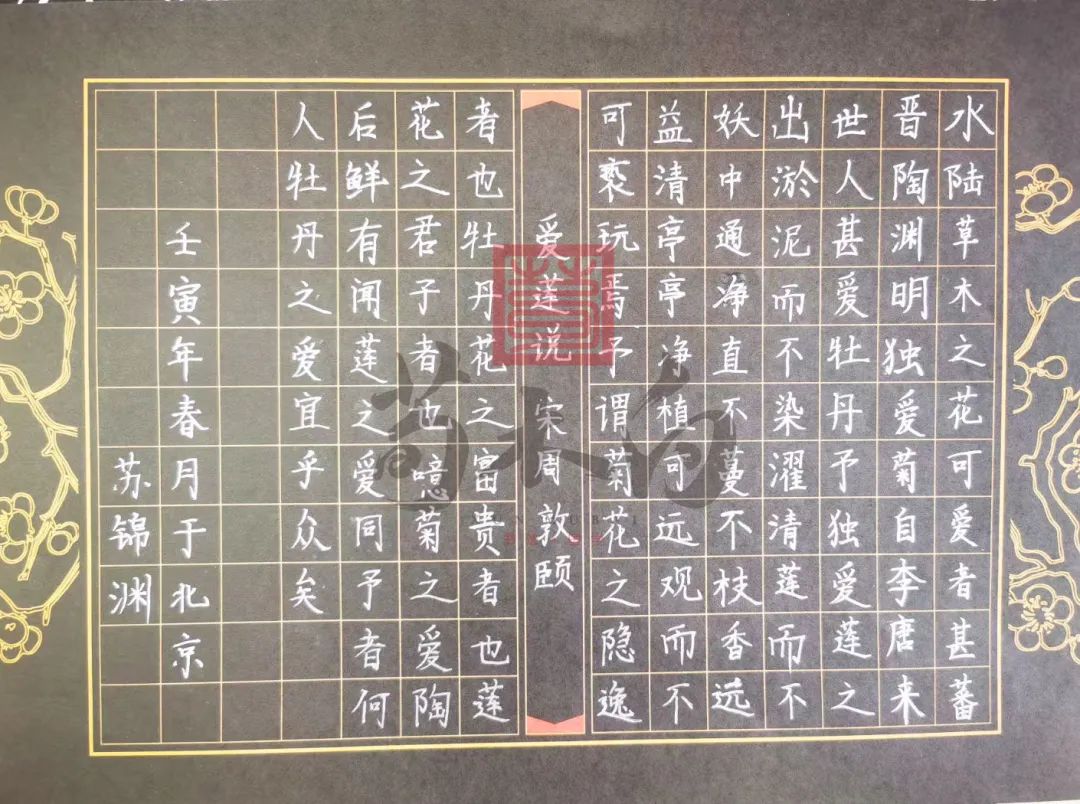 水陆草木之花可爱者甚蕃
晋陶渊明独爱菊自李唐来
世人甚爱牡丹予独爱莲之
出淤泥而不染濯清莲而不
妖中通净直不蔓不枝香远
益清亭亭净植可远观而不
可亵玩焉予谓菊花之隐逸
爱莲说 宋周敦颐
者也牡丹花之富贵者也莲
花之君子者也噫菊之爱陶
后鲜有闻莲之爱同予者何
人牡丹之爱宜乎众矣
壬寅年春月于北京
苏锦渊